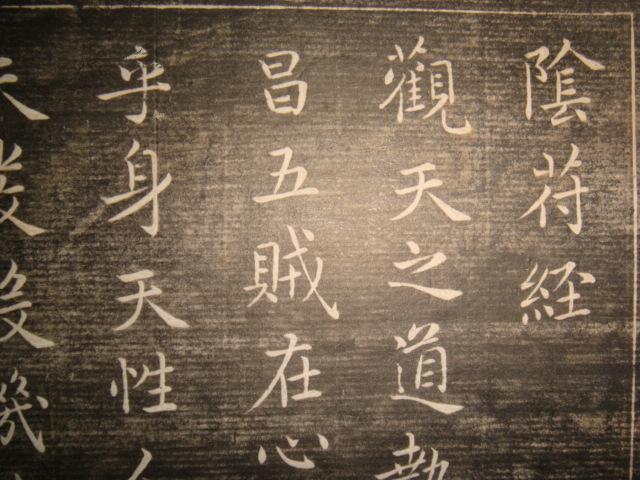 陰符経
觀天之道執
昌五賊在心
乎身天性人
天發殺機